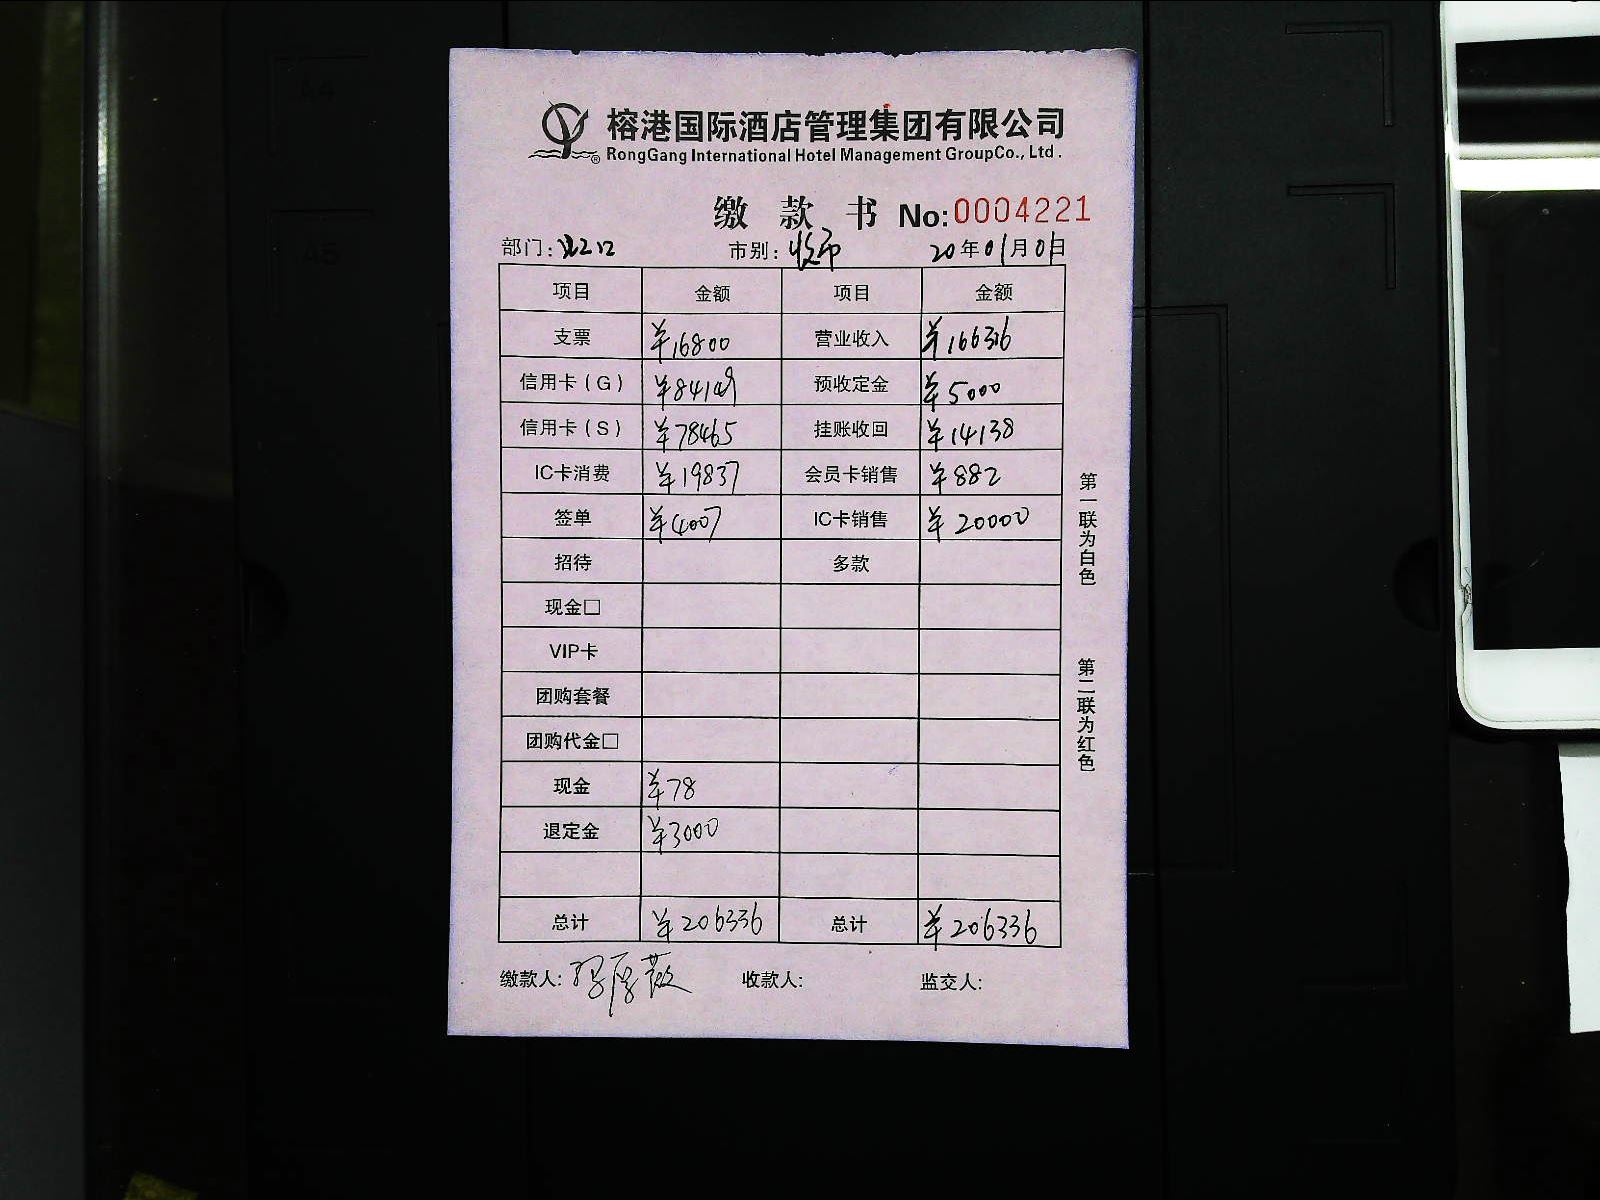 榕港国际酒店管理集团有限公司
® RongGang International Hotel Management GroupCo., Ltd.
缴款书 No:0004221
部门: 市别:收市 20年01月01日
项目 金额 项目 金额
支票 ¥16800 营业收入 ¥166316
信用卡(G) ¥84149 预收定金 ¥5000
信用卡(S) ¥78465 挂账收回 ¥14138
IC卡消费 ¥19837 会员卡销售 ¥882
签单 ¥4007 IC卡销售 ¥20000
招待 多款
现金□
VIP卡
团购套餐
团购代金□
现金 ¥78
退定金 ¥3000
总计 ¥206336 总计 ¥206336
缴款人: 收款人: 监交人:
第一联为白色
第二联为红色
A4
A5